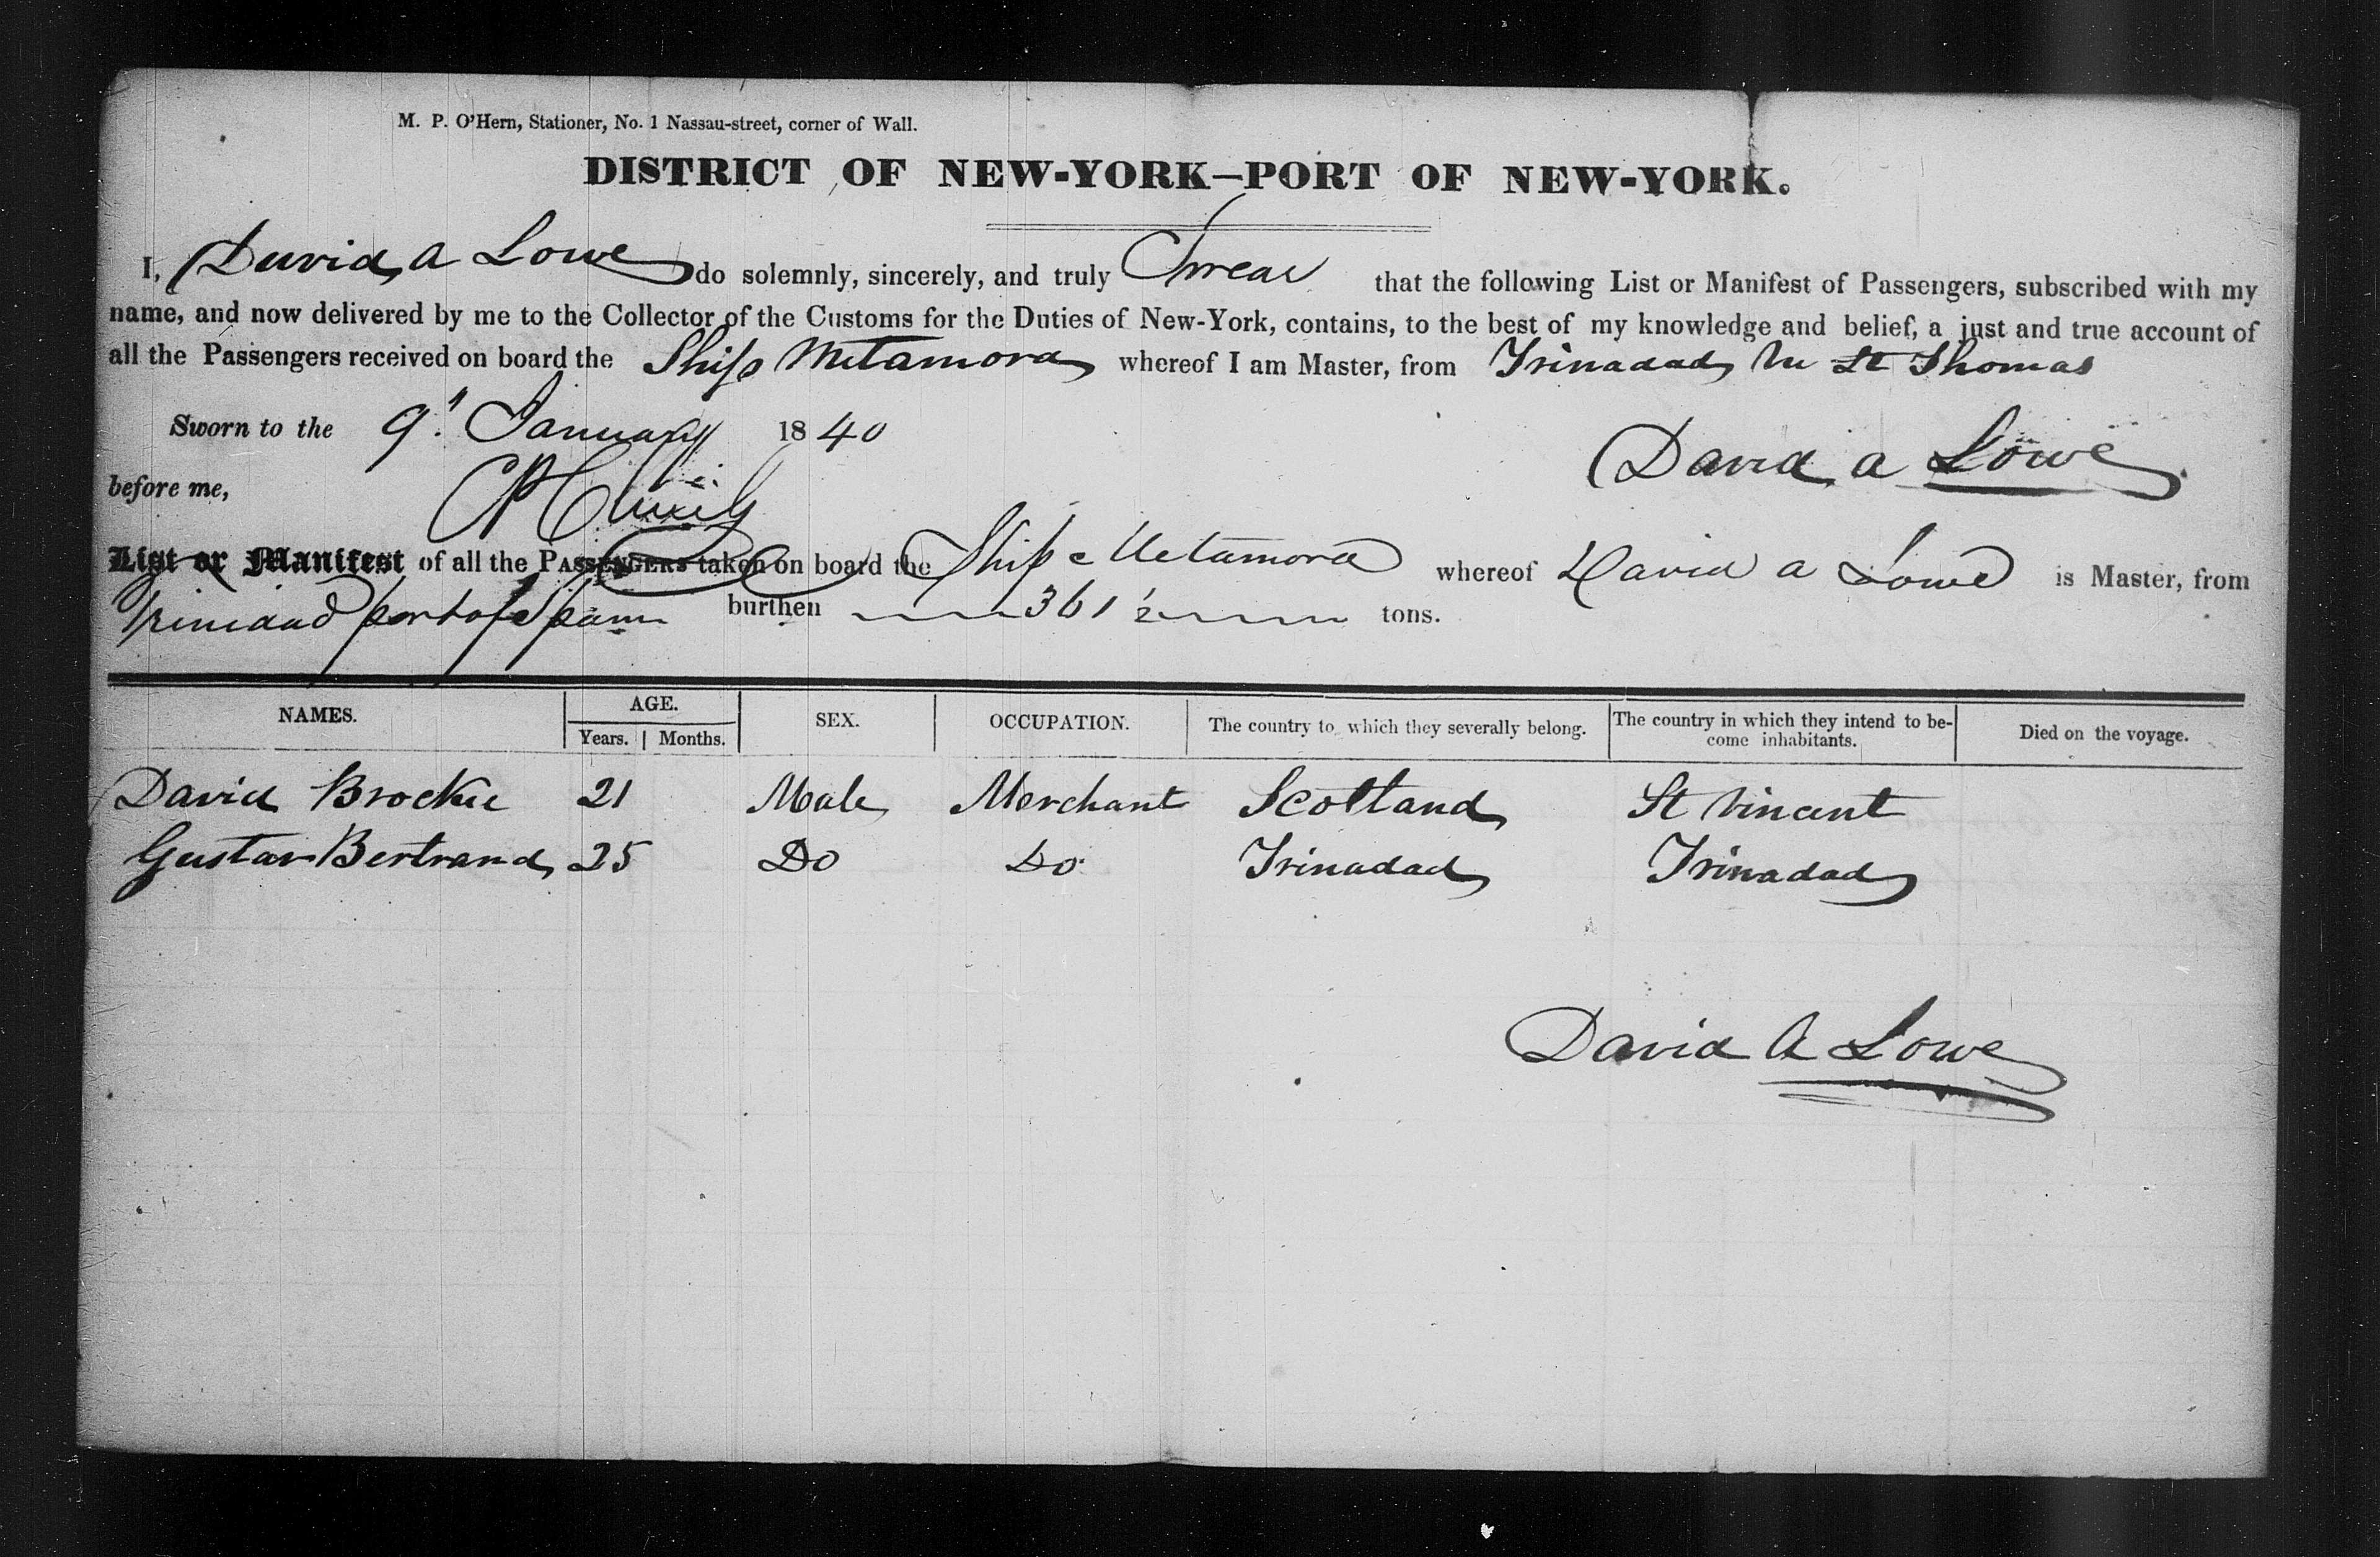 M. P. O'Hern, Stationer, No. 1 Nassau-street, corner of Wall.
DISTRICT OF NEW-YORK—PORT OF NEW-YORK.
I, David A Lowe do solemnly, sincerely, and truly Swear that the following List or Manifest of Passengers, subscribed with my
name, and now delivered by me to the Collector of the Customs for the Duties of New-York, contains, to the best of my knowledge and belief, a just and true account of
all the Passengers received on board the Ship Metamora whereof I am Master, from Trinadad St Thomas
Sworn to the 9" January 1840
David A Lowe
before me,
List or Manifest of all the PASSENGERS taken on board the Ship Metamora whereof David A Lowe is Master, from
Trinidad port of Spain burthen 361 1/2 tons.
NAMES. AGE. SEX. OCCUPATION. The country to which they severally belong. The country in which they intend to be- Died on the voyage.
Years. Months. come inhabitants.
David Brockie 21 Male Merchant Scotland St Vincent
Gustav Bertrand 25 Do Do Trinadad Trinadad
David A Lowe